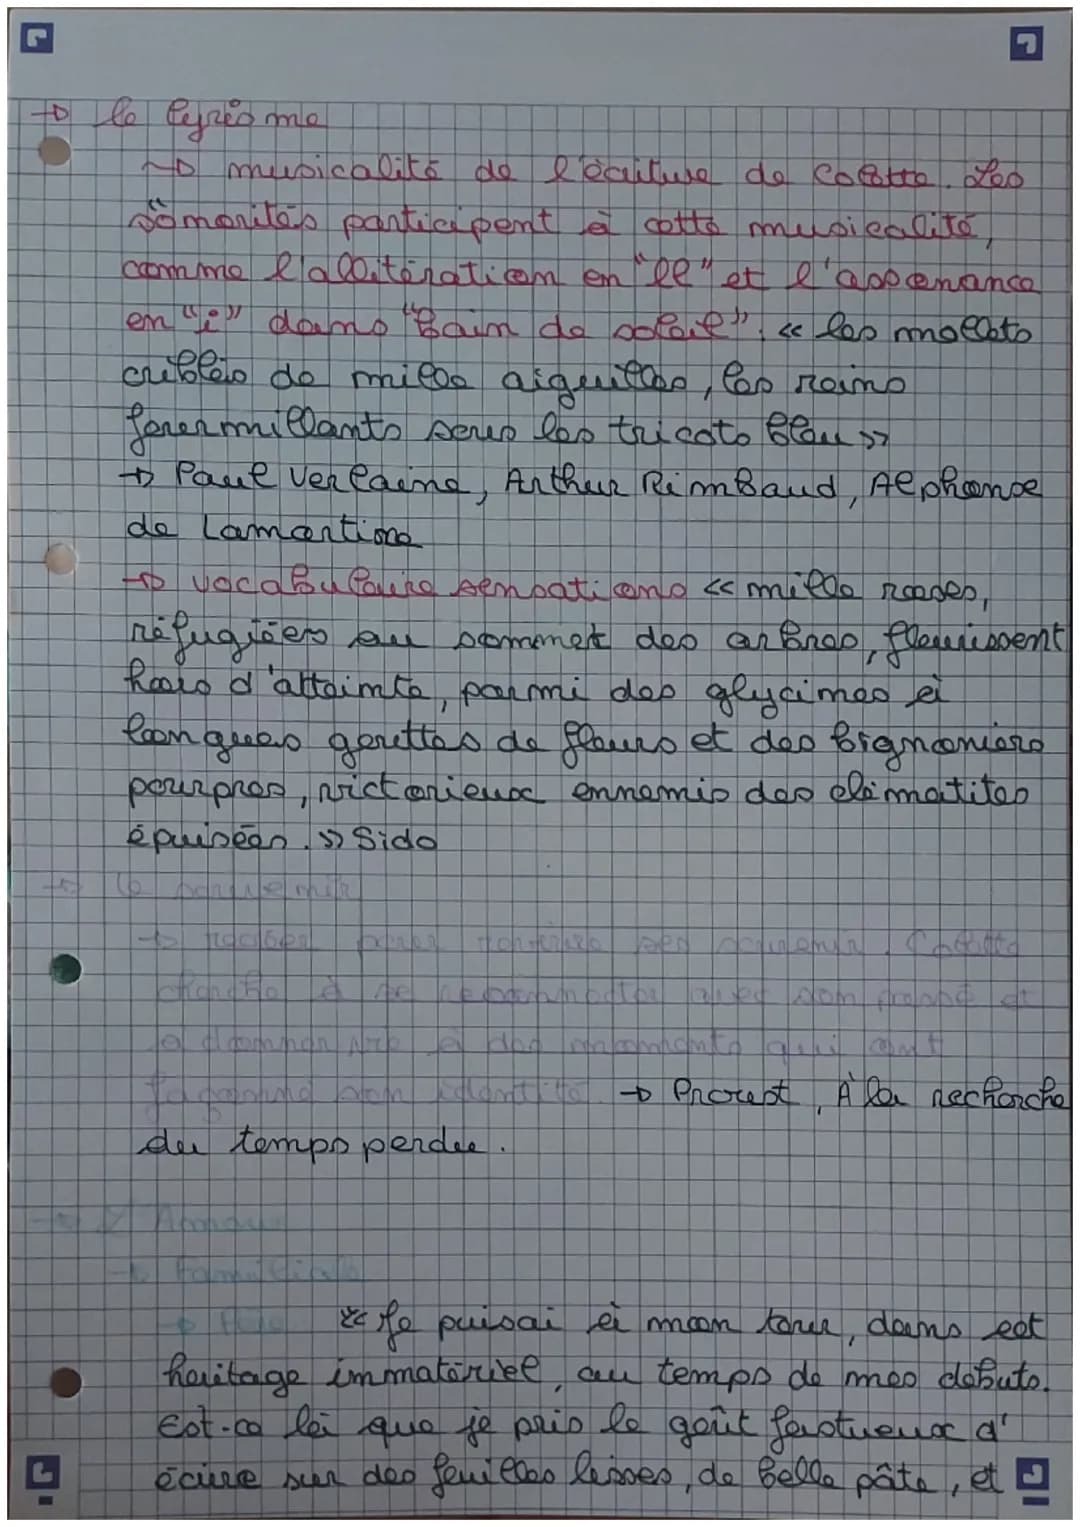 → le lyrisme
→ musicalité de l'écriture de Colette. Les
sonorités participent à cette musicalité,
comme l'allitération en "ll" et l'assonance
en "i" dans "Bain de soleil": « les mollets
criblés de mille aiguilles, les reins
fourmillants sous les tricots bleu »
→ Paul Verlaine, Arthur Rimbaud, Alphonse
de Lamartine
→ vocabulaire sensations « mille roses,
réfugiées au sommet des arbres, fleurissent
hors d'atteinte, parmi des glycines à
longues gouttes de fleurs et des bignoniers
pourpres, victorieux ennemis des clématites
épuisées. » Sido
→ le souvenir
→ pour ses souvenir. Colette
cherche à se reconnecter avec son passé et
a donner vie à des moments qui ont
façonné son identité. → Proust, À la recherche
du temps perdu.
→ L'Amour
→ Familiale
→ « Je puisai à mon tour, dans cet
héritage immatériel, au temps de mes débuts.
Est-ce là que je pris le goût fastueux d'
écrire sur des feuilles lisses, de belle pâte, et